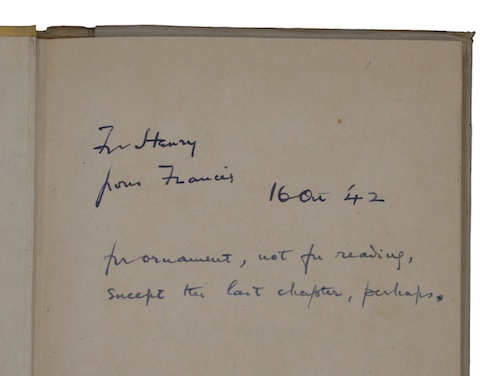 For Henry
from Francis
16 Oct 42
for ornament, not for reading,
except the last chapter, perhaps.